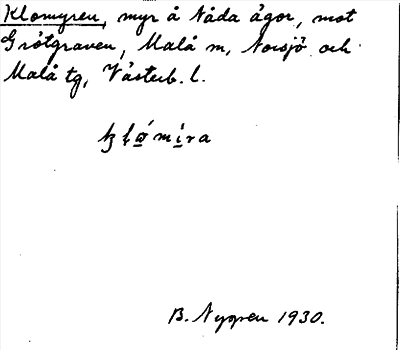 Klomyren, myr å Nåda ägor, mot
Grötgraven, Malå m, Norsjö och
Malå tg, Västerb. l.
B. Nygren 1930.